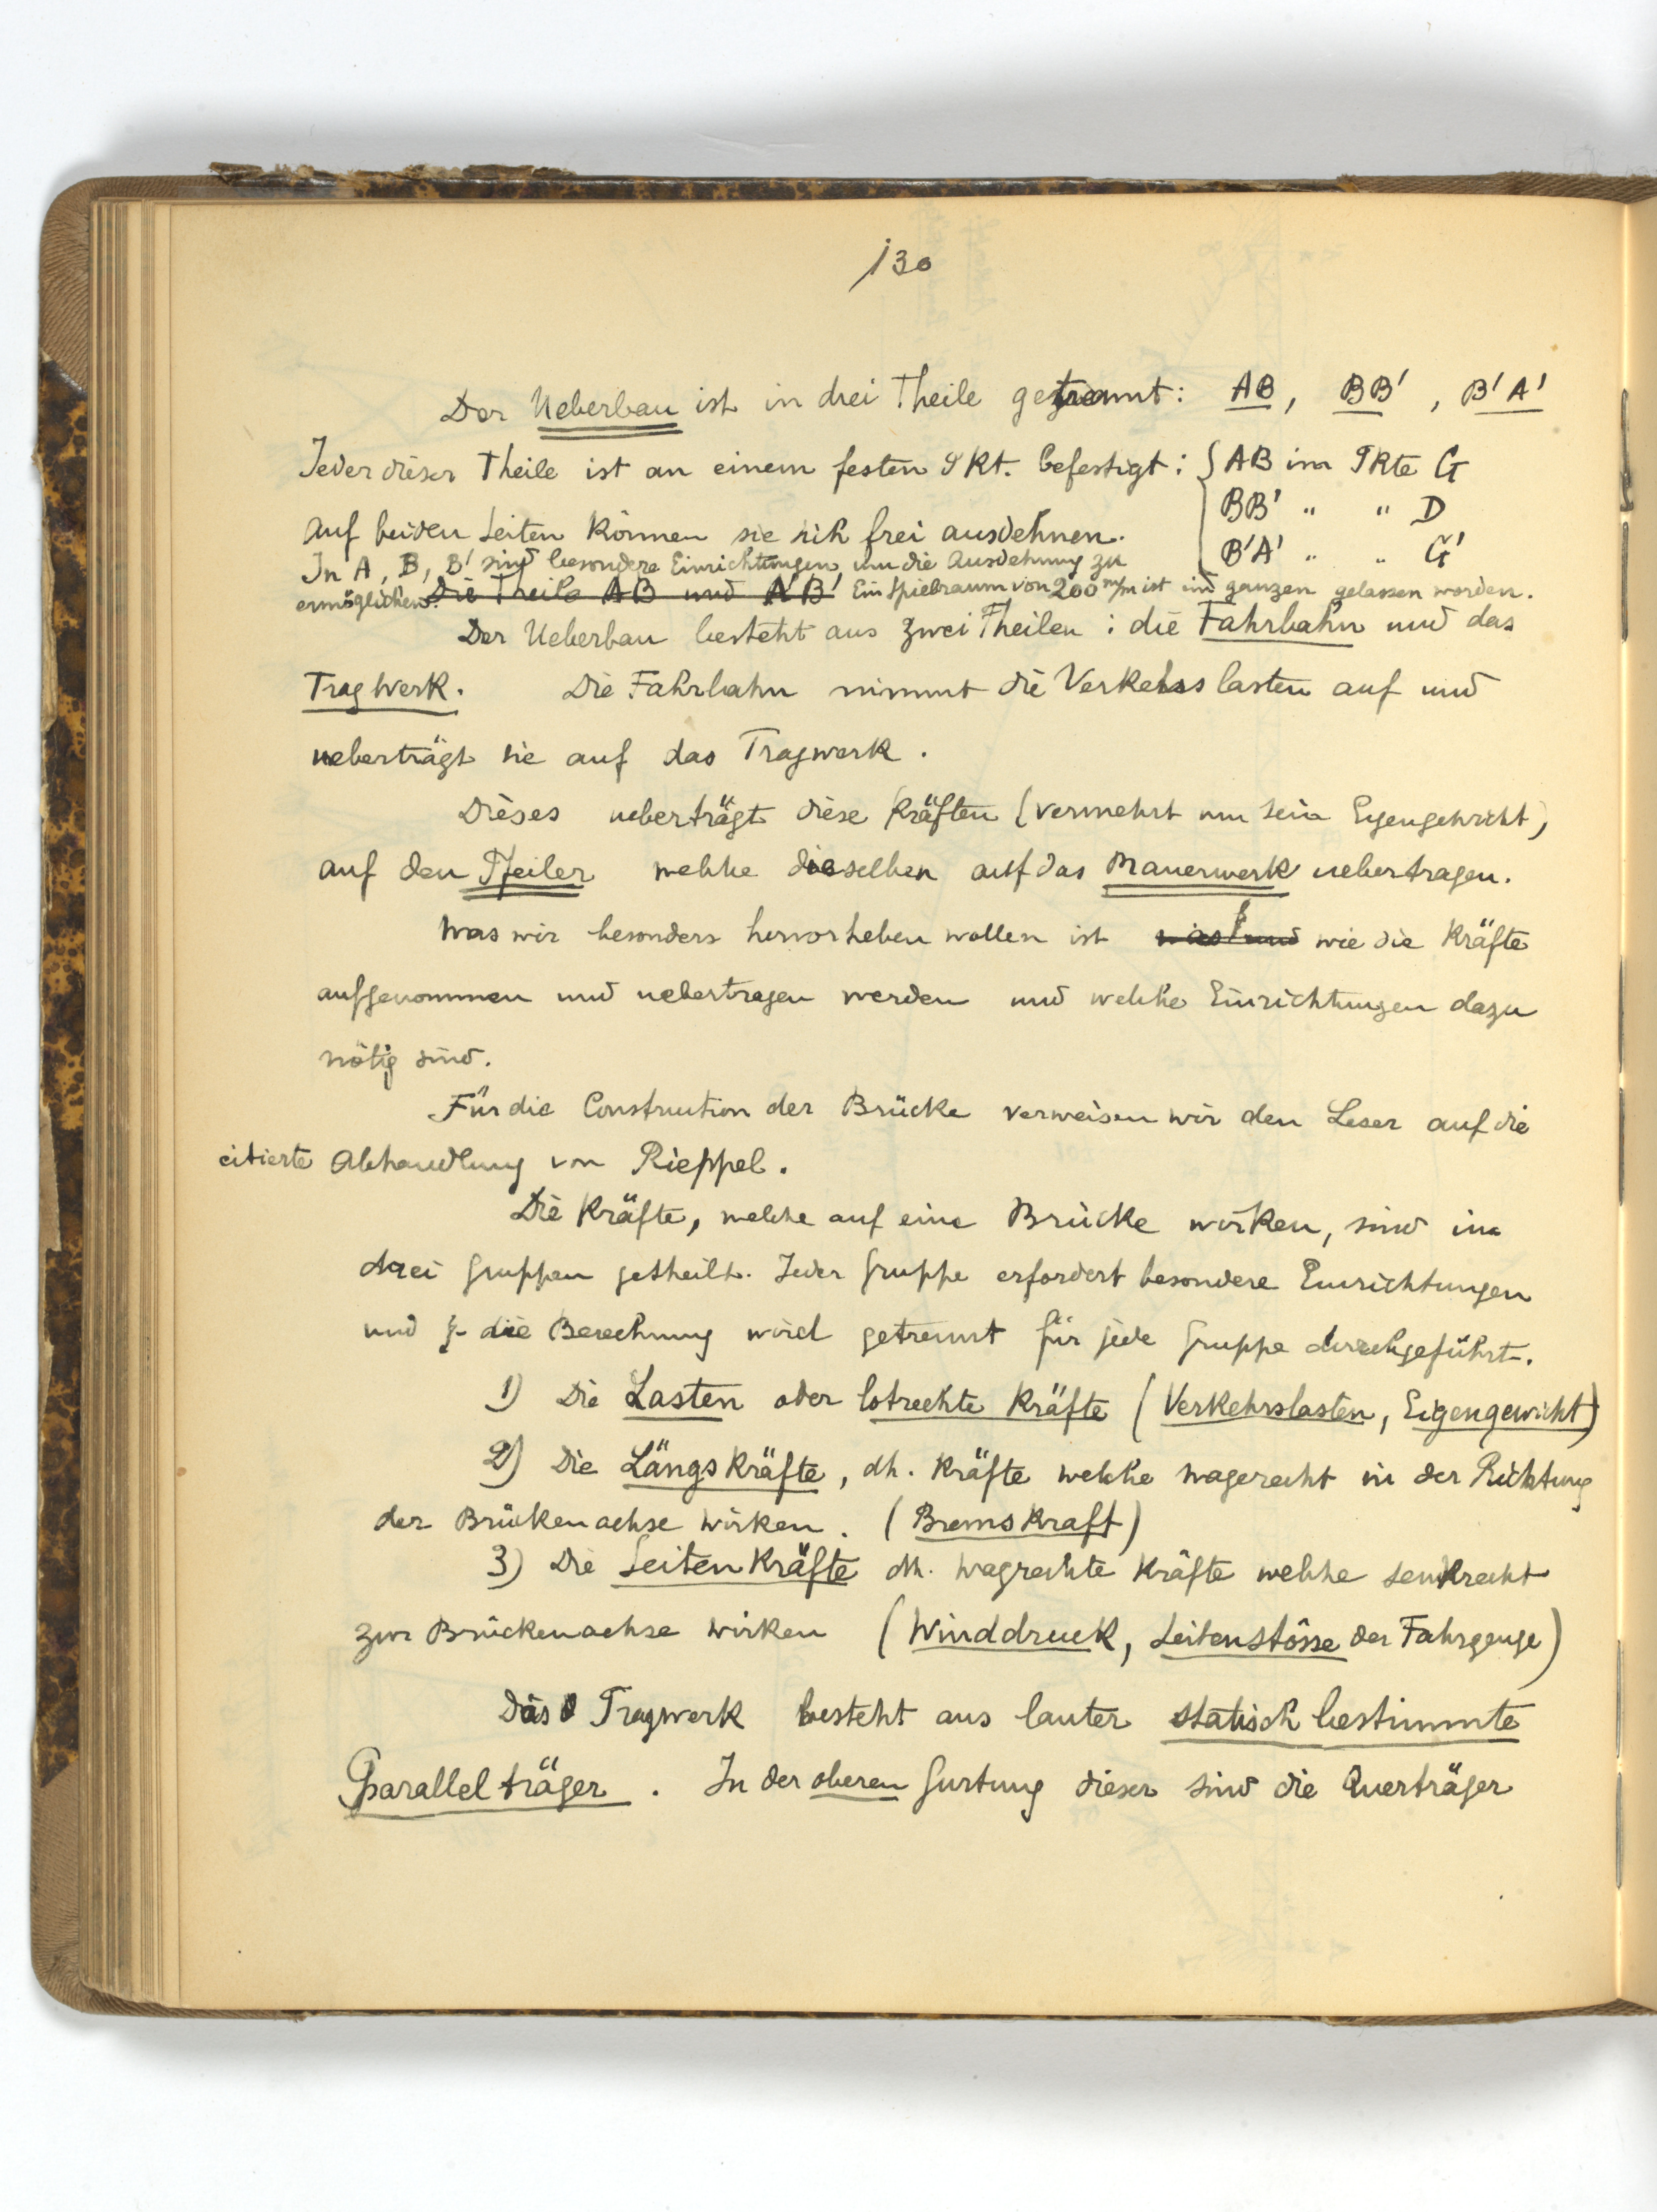 130
Der Ueberbau ist in drei Theile getrennt: AB, BB', B'A'
Jeder dieser Theile ist an einem festen Pkt. befestigt: { AB im Pkte G
BB' " " D
auf beiden Seiten können sie sich frei ausdehnen.
B'A' " " G'
In A, B, B' sind besondere Einrichtungen um die Ausdehnung zu
ermöglichen. Die Theile AB und A'B' Ein Spielraum von 200 m/m ist im ganzen gelassen worden.
Der Ueberbau besteht aus zwei Theilen: die Fahrbahn und das
Tragwerk. Die Fahrbahn nimmt die Verkehrslasten auf und
ueberträgt sie auf das Tragwerk.
Dieses ueberträgt diese Kräften (vermehrt um sein Eigengewicht)
auf den Pfeiler welche dieselben auf das Mauerwerk uebertragen.
Was wir besonders hervorheben wollen ist wie die Kräfte
aufgenommen und uebertragen werden und welche Einrichtungen dazu
nötig sind.
Für die Construction der Brücke verweisen wir den Leser auf die
citierte Abhandlung von Rieppel.
Die Kräfte, welche auf eine Brücke wirken, sind in
drei Gruppen getheilt. Jeder Gruppe erfordert besondere Einrichtungen
und die Berechnung wird getrennt für jede Gruppe durchgeführt.
1) Die Lasten oder lotrechte Kräfte (Verkehrslasten, Eigengewicht)
2) Die Längskräfte, dh. Kräfte welche wagerecht in der Richtung
der Brückenachse wirken. (Bremskraft)
3) Die Seitenkräfte dh. wagrechte Kräfte welche senkrecht
zur Brückenachse wirken (Winddruck, Seitenstösse der Fahrzeuge)
Das Tragwerk besteht aus lauter statisch bestimmte
Parallelträger. In der oberen Gurtung dieser sind die Querträger